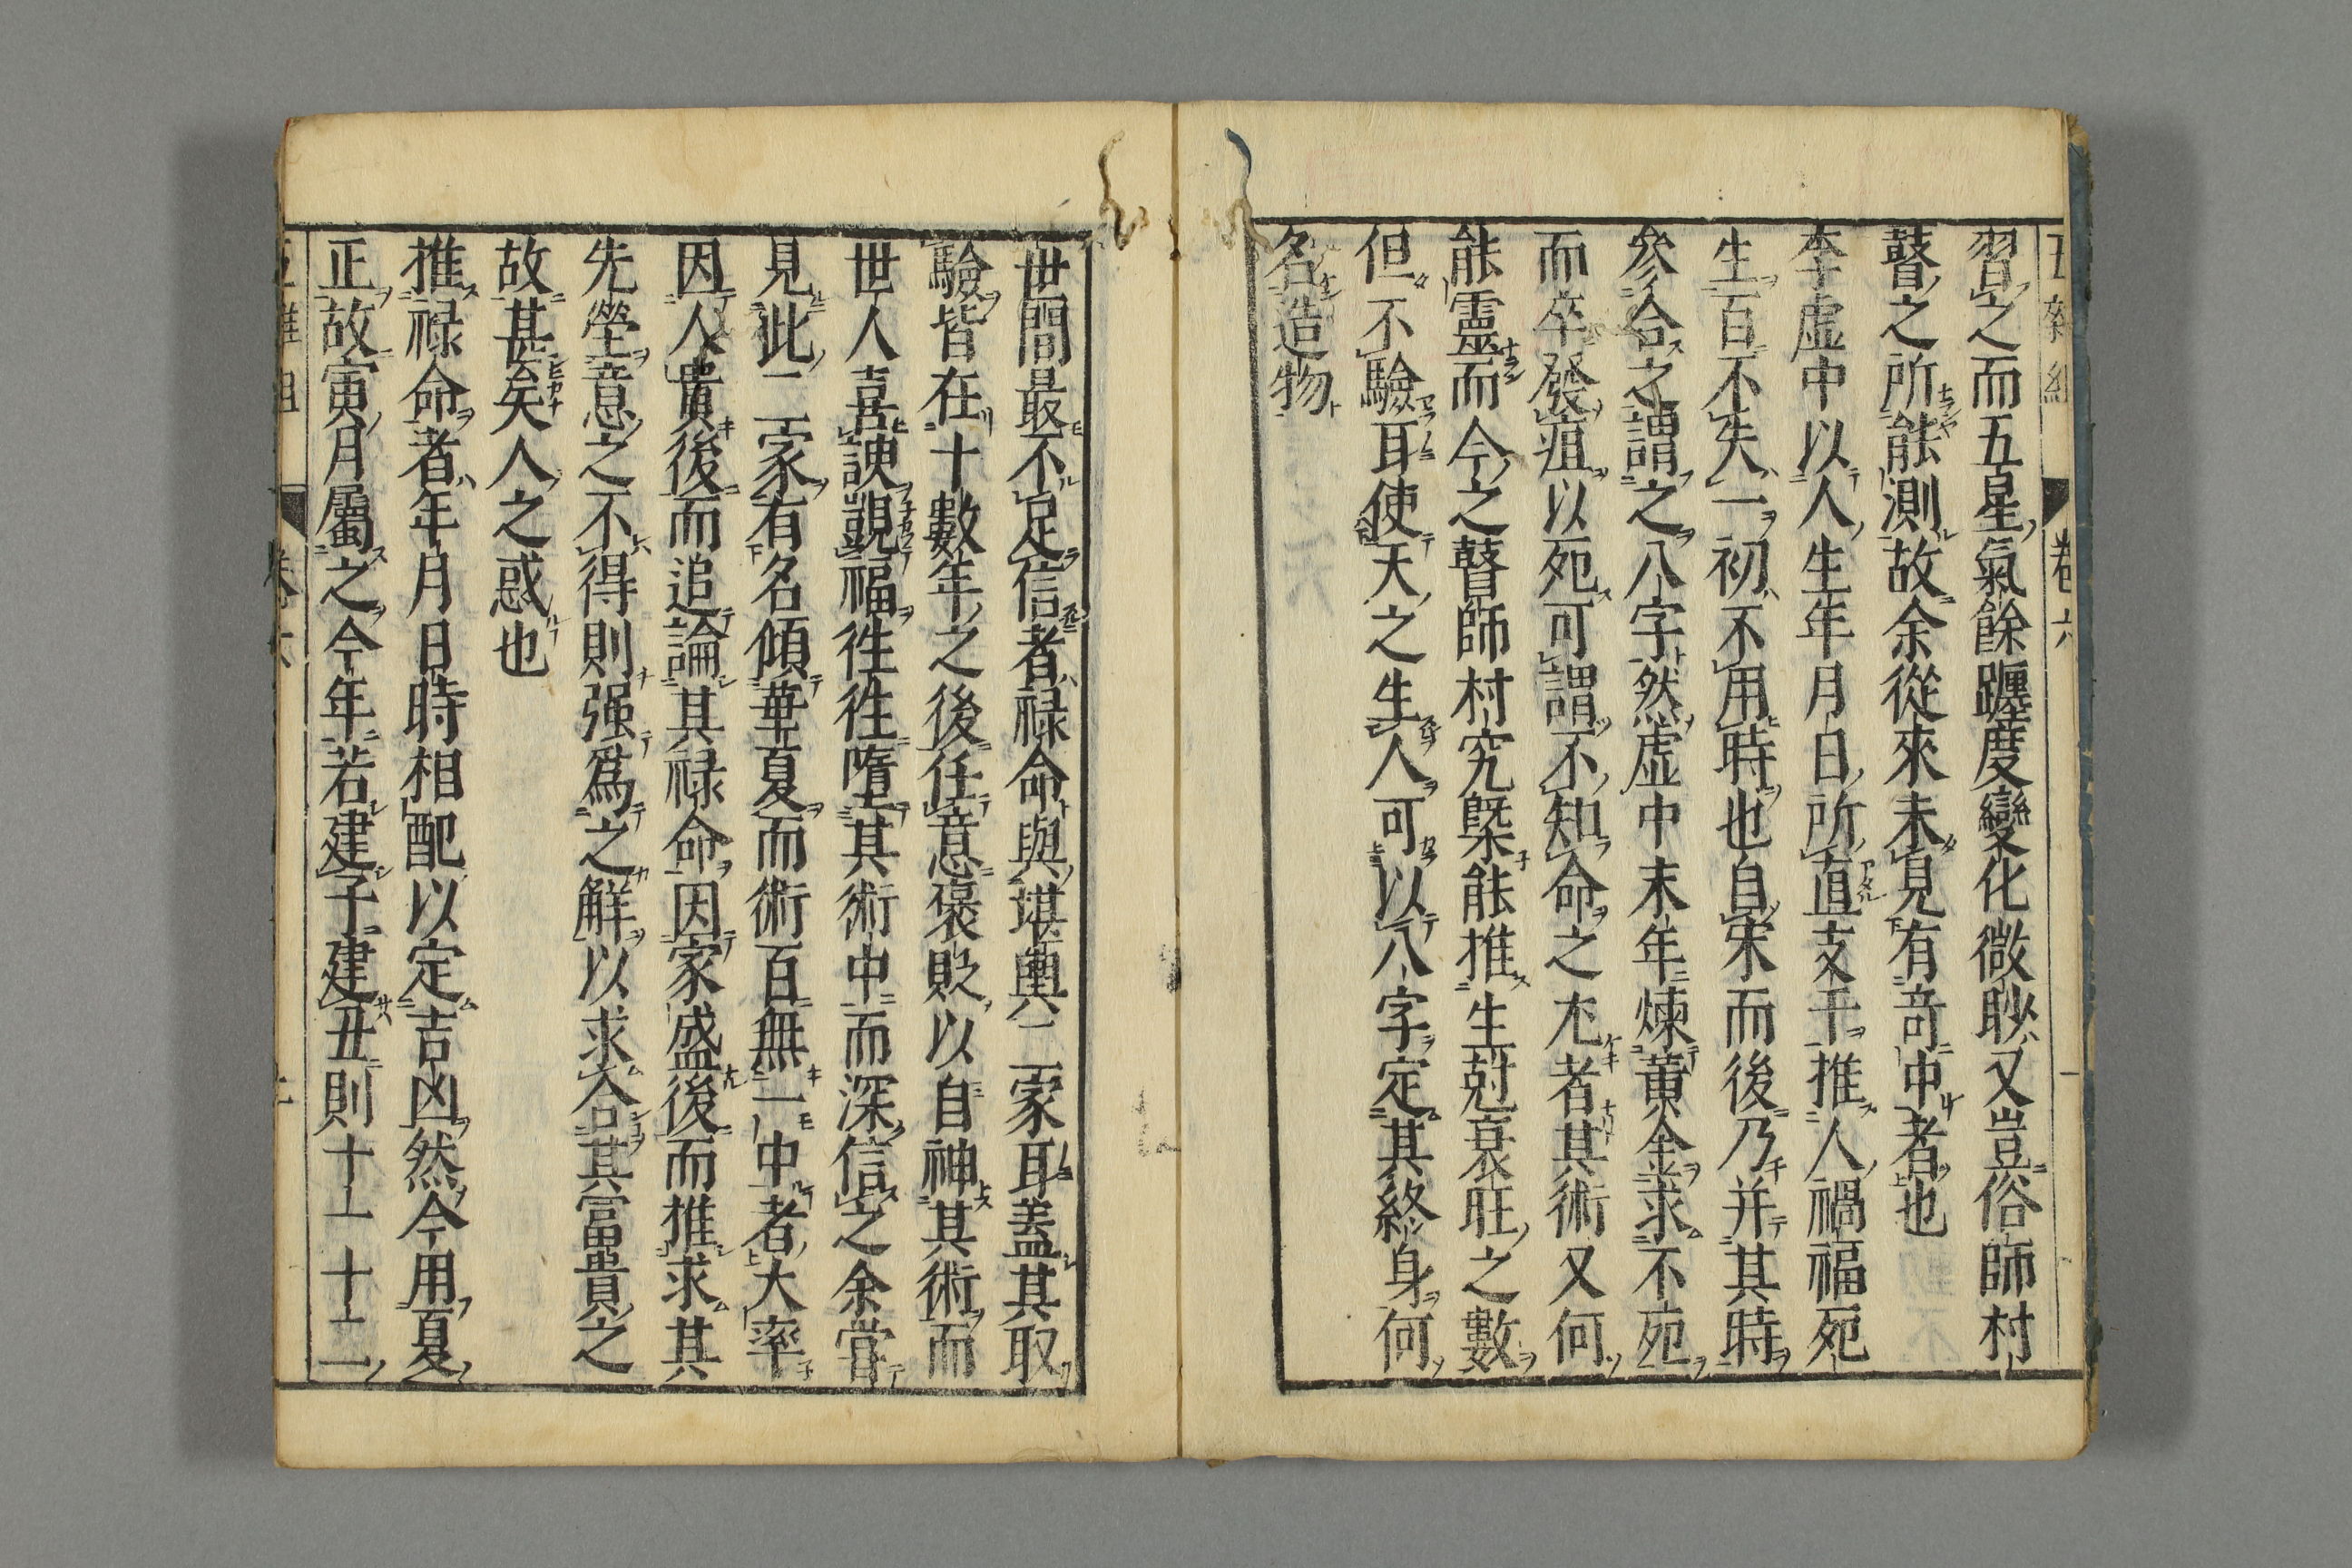 五雜組 卷六
習之而五星氣餘躔度變化微眇又豈俗師村
瞽之所能測故余從來未見有竒中者也
李虛中以人生年月日所直支干推人禍福死
生百不失一初不用時也自宋而後乃并其時
參合之謂之八字然虛中末年煉黃金求不死
而卒發疽以死可謂不知命之尤者其術又何
能靈而今之瞽師村究槩能推生尅衰旺之數
但不驗耳使天之生人可以八字定其終身何
名造物
世間最不足信者祿命與堪輿二家耳蓋其取
驗皆在十數年之後任意褒貶以自神其術而
世人喜諛覬福徃徃墮其術中而深信之余嘗
見此二家有名傾華夏而術百無一中者大率
因人貴後而追論其祿命因家盛後而推求其
先塋意之不得則强爲之解以求合其富貴之
故甚矣人之惑也
推祿命者年月日時相配以定吉凶然今用夏
正故寅月屬之今年若建子建丑則十一十二
五雜組 卷六